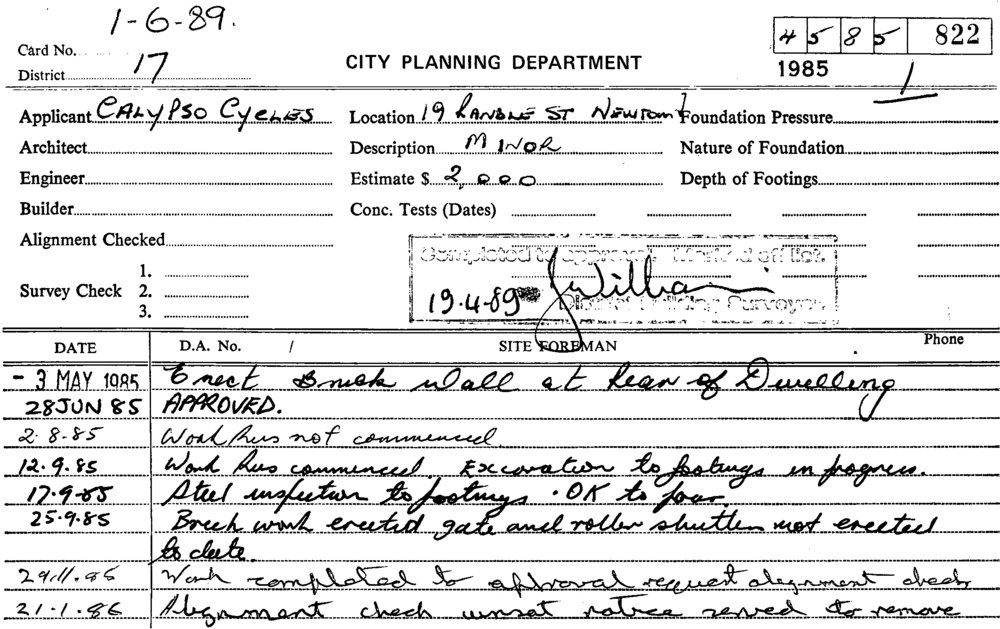 1-6-89.
Card No.
District 17
CITY PLANNING DEPARTMENT
4 5 8 5 822
1985 1
Applicant CALYPSO CYCLES Location 19 RANDLE ST NEWTOWN Foundation Pressure
Architect Description MINOR Nature of Foundation
Engineer Estimate $ 2,000 Depth of Footings
Builder Conc. Tests (Dates)
Alignment Checked
Completed to approval. Marked off list.
1.
Survey Check 2.
3.
19.4.89 J Williams
District Building Surveyor
DATE D.A. No. / SITE FOREMAN Phone
- 3 MAY 1985 Erect Brick Wall at Rear of Dwelling
28 JUN 85 APPROVED.
2.8.85 Work has not commenced
12.9.85 Work has commenced. Excavation to footings in progress.
17.9.85 Steel inspection to footings. OK to pour
25.9.85 Brick work erected gate and roller shutter not erected
to date.
29.11.85 Work completed to approval request alignment check
21.1.86 Alignment check unsat notice served to remove